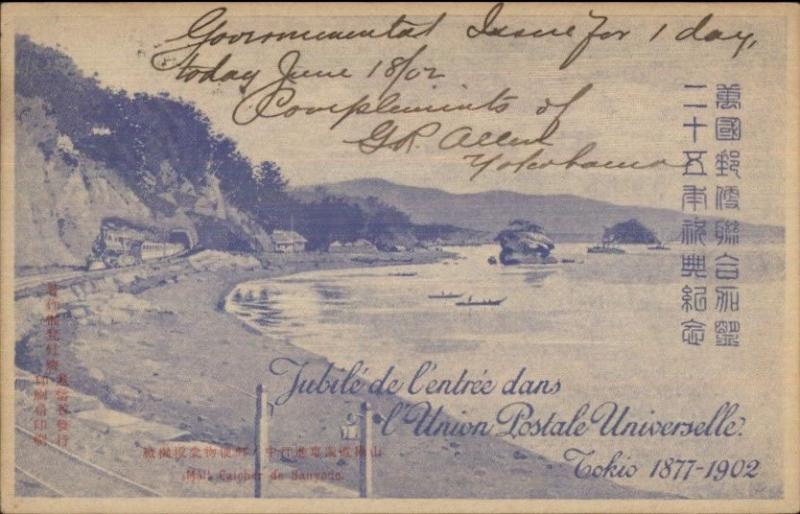 Governmental Issue for 1 day,
today June 18/02
Compliments of
G.R. Allen
Yokohama
萬國郵便聯合加盟
二十五年祝典紀念
Jubilé de l'entrée dans
l'Union Postale Universelle.
Tokio 1877-1902
印刷局印刷
遞信省發行
Mail Catcher de Sanyodo.